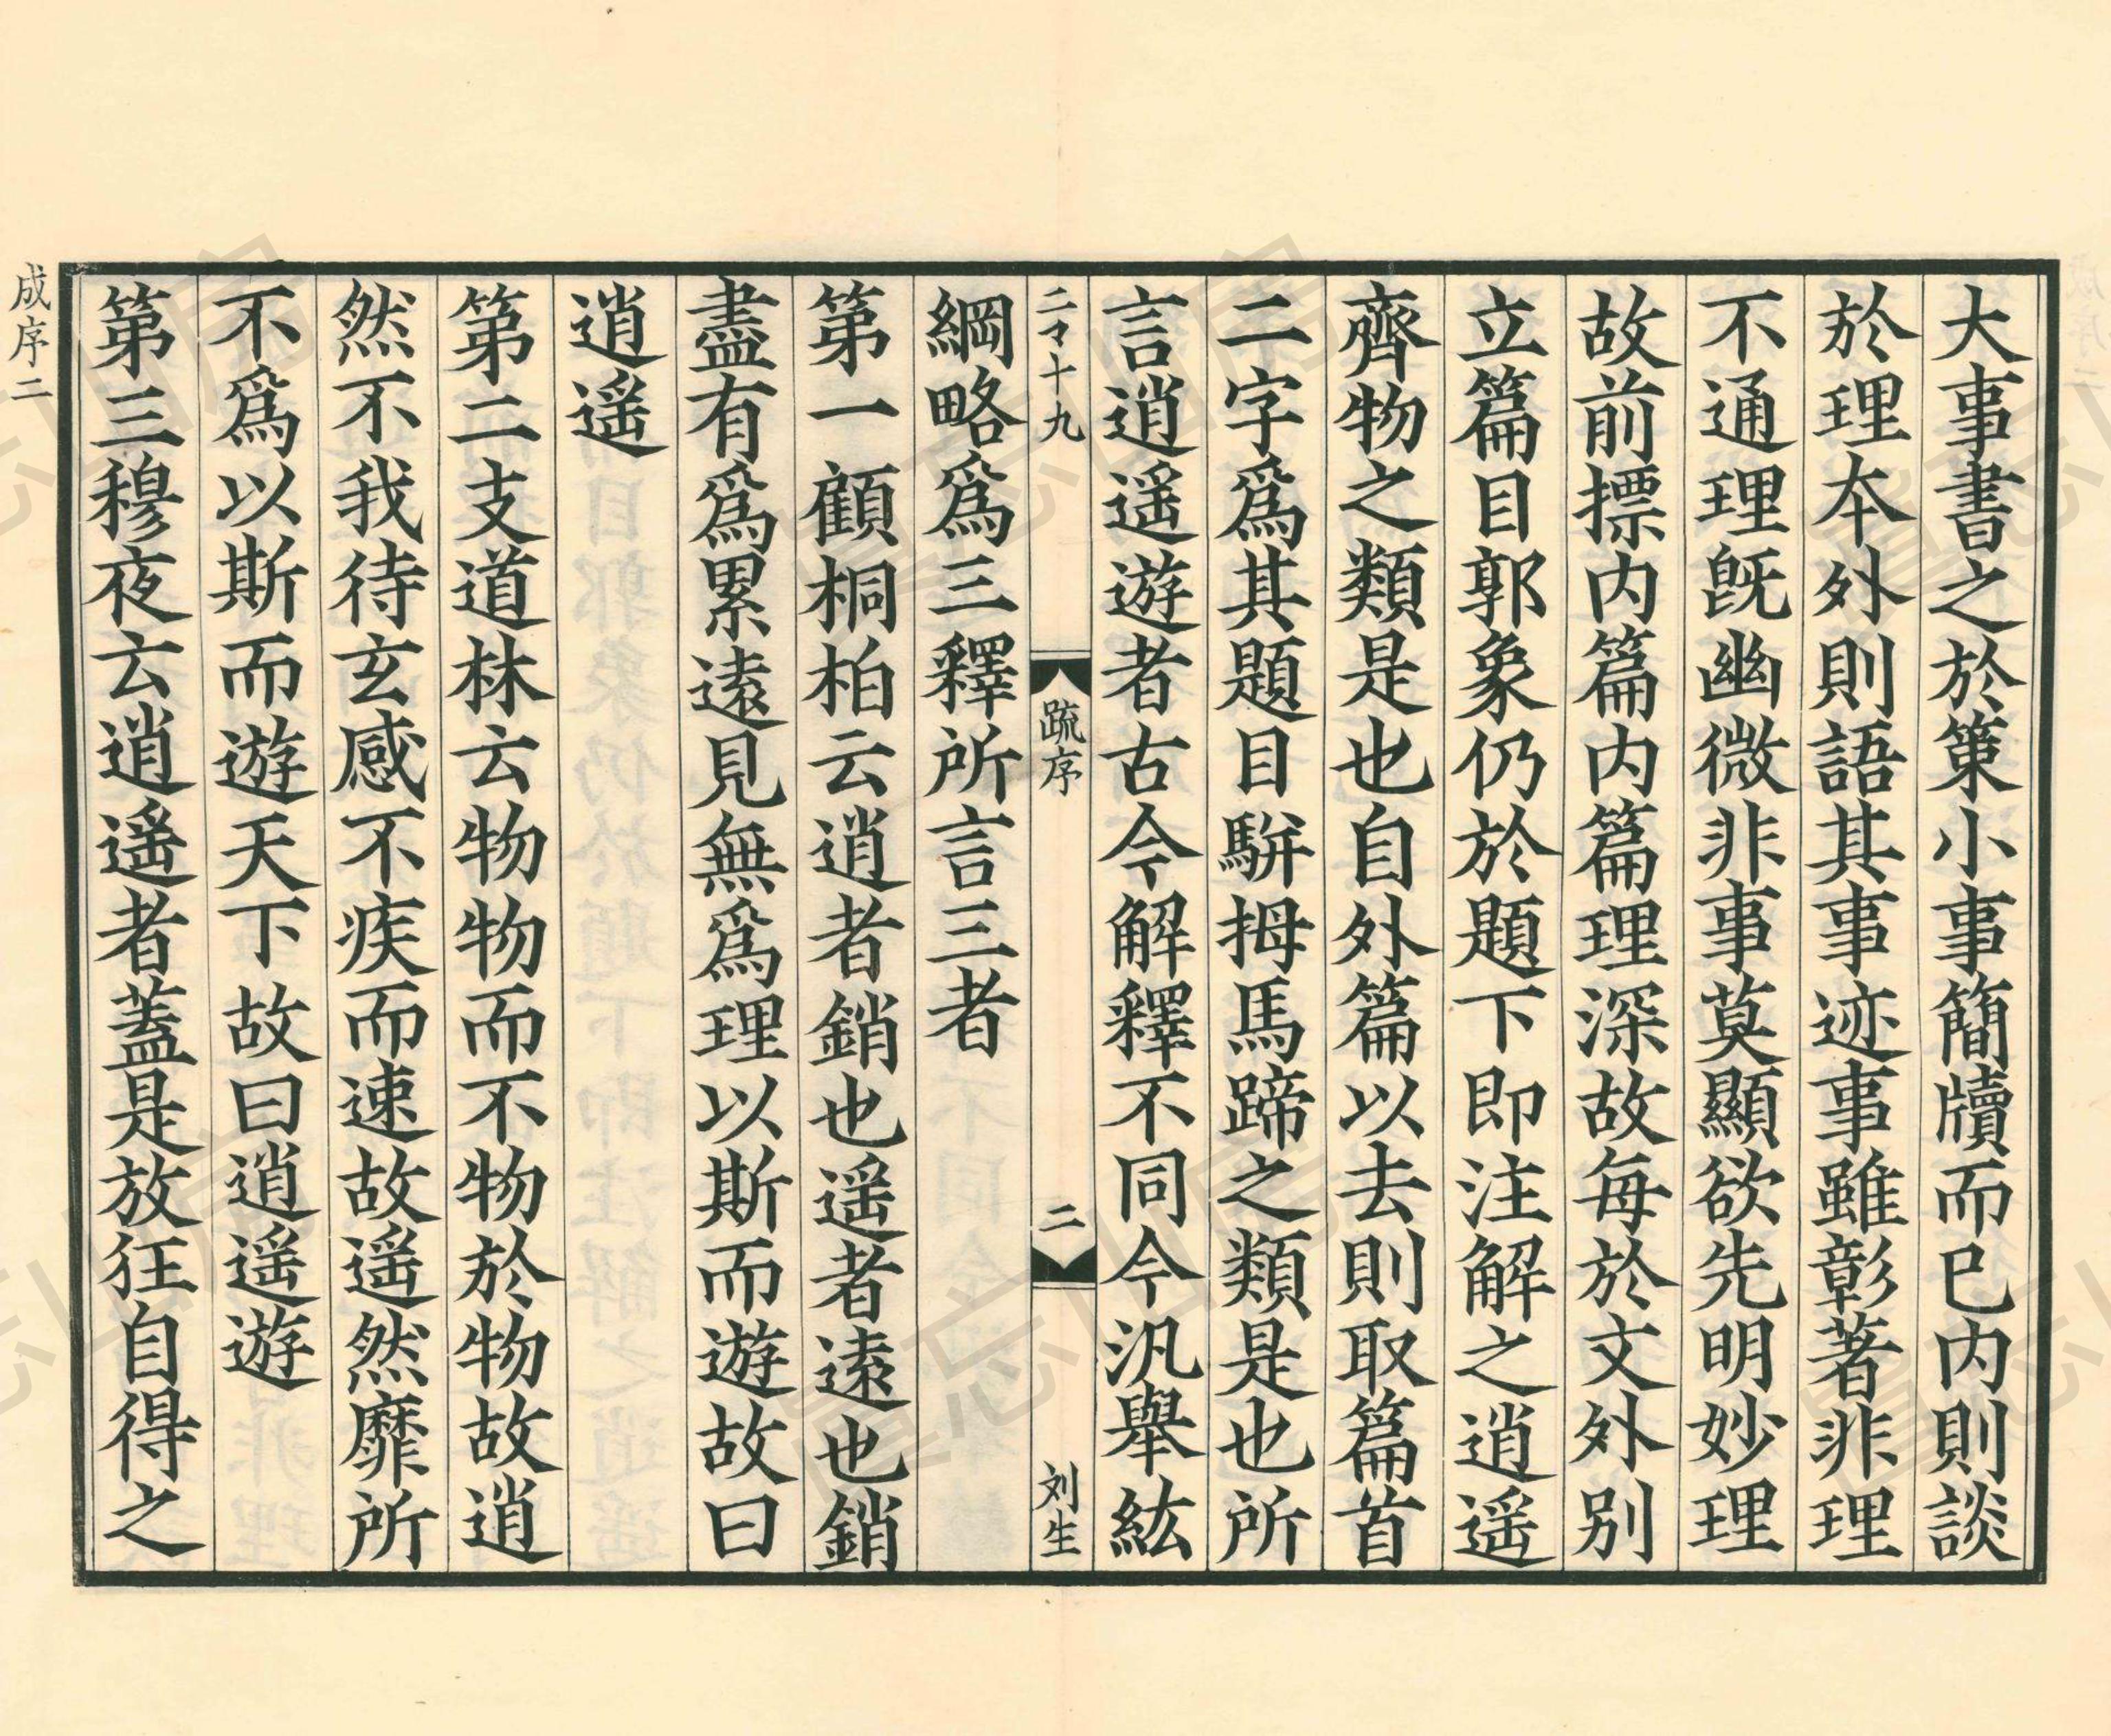 大事書之於策小事簡牘而已内則談
於理本外則語其事迹事雖彰著非理
不通理旣幽微非事莫顯欲先明妙理
故前摽内篇内篇理深故每於文外别
立篇目郭象仍於題下即注解之逍遥
齊物之類是也自外篇以去則取篇首
二字爲其題目駢拇馬蹄之類是也所
言逍遥遊者古今解釋不同今汎舉紘
二マ十九
疏序
二
刘生
綱略爲三釋所言三者
第一顧桐柏云逍者銷也遥者遠也銷
盡有爲累遠見無爲理以斯而遊故曰
逍遥
第二支道林云物物而不物於物故逍
然不我待玄感不疾而速故遥然靡所
不爲以斯而遊天下故曰逍遥遊
第三穆夜云逍遥者蓋是放狂自得之
成序二